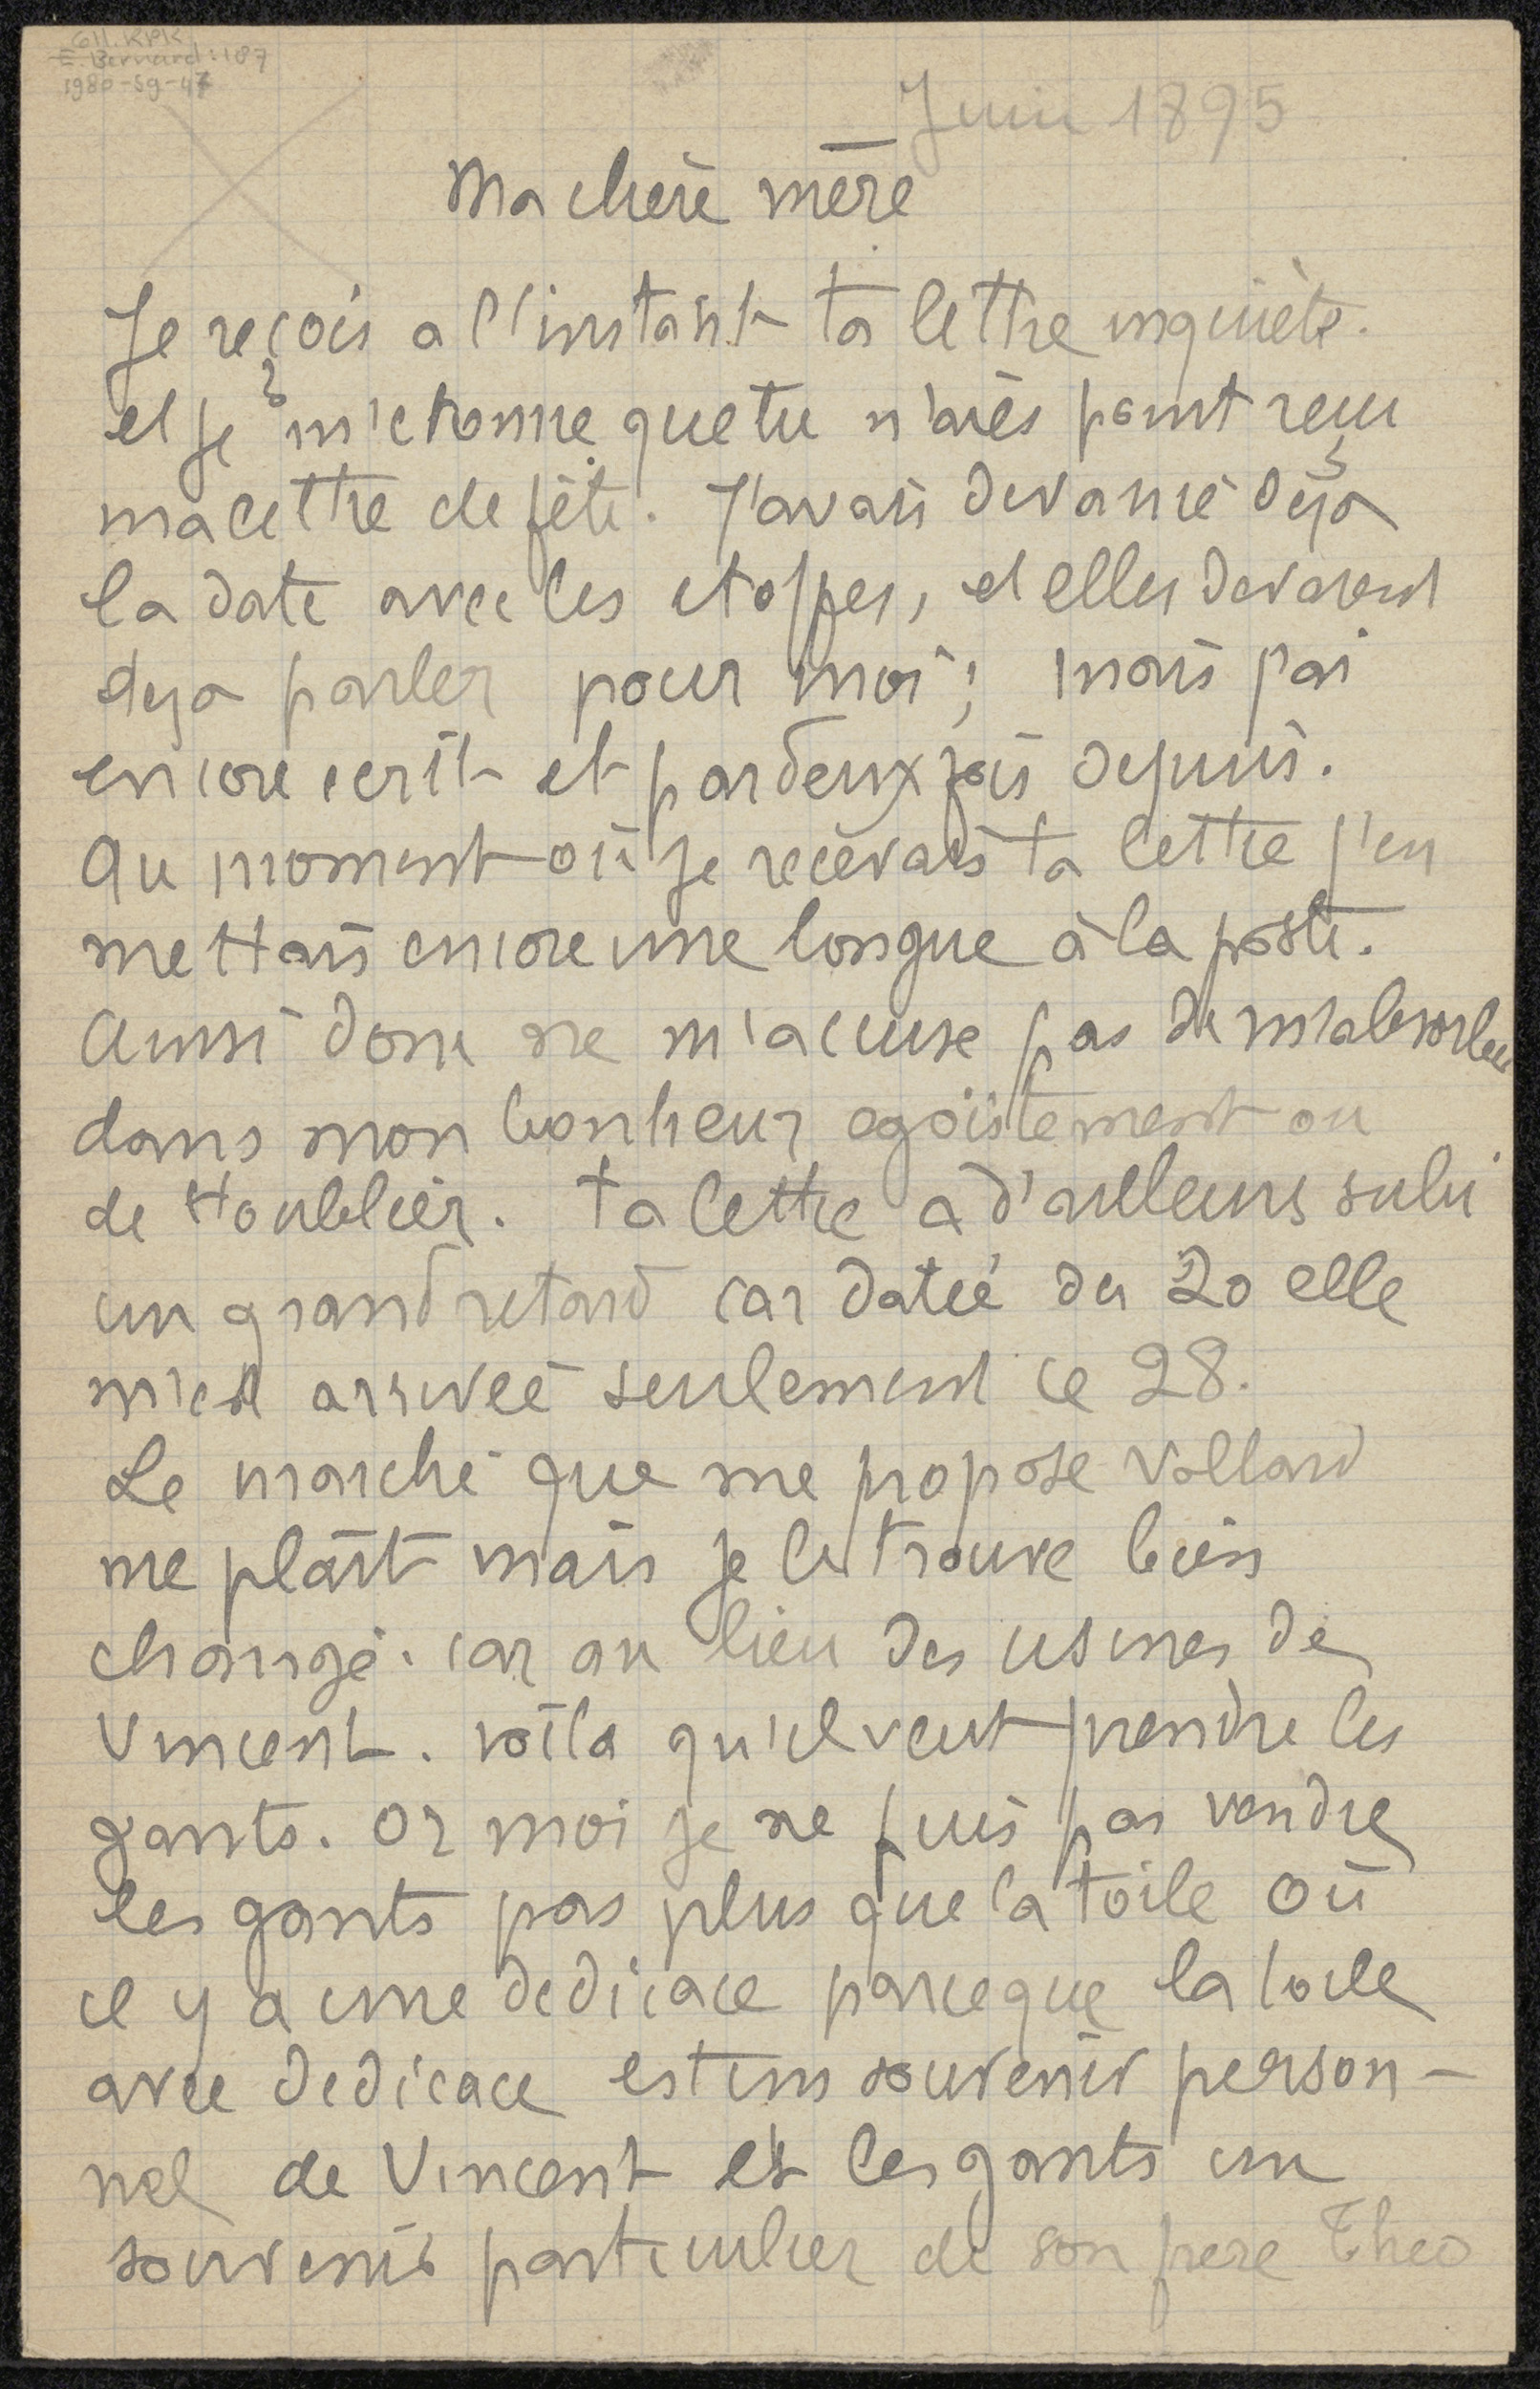 611. KPK
E. Bernard: 187
1980-59-47
Juin 1895
Ma chère mère
Je reçois a l'instant ta lettre inquiète.
et je m'etonne que tu n'aies point reçu
ma lettre de fête. J'avais devancé déjà
la date avec les etoffes, et elles devaient
deja parler pour moi; mais j'ai
encore ecrit et par deux fois depuis.
Au moment où je recevais ta lettre j'en
mettais encore une longue à la poste.
Aussi donc ne m'accuse pas de m'absorber
dans mon bonheur egoïstement ou
de t'oublier. Ta lettre a d'ailleurs subi
un grand retard car datée du 20 elle
m'est arrivée seulement ce 28.
Le marché que me propose Vollard
me plaît mais je le trouve bien
changé. car au lieu des usines de
Vincent. voila qu'il veut prendre les
gants. Or moi je ne puis pas vendre
les gants pas plus que la toile où
il y a une dedicace parceque la toile
avec dedicace est un souvenir person-
nel de Vincent et les gants un
souvenir particulier de son frere Theo